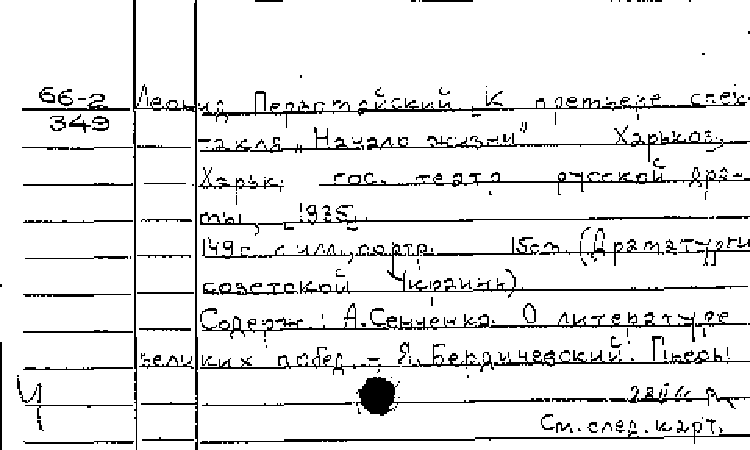 66-2
349
Леонид Первомайский. К премьере спек-
такля „Начало жизни" Харьков,
Харьк. гос. театр русской дра-
мы, [1935].
149с. с илл., портр. 15см. (Драматурги
советской Украины).
Содерж.: А.Сенченко. О литературе
великих побед. – Я. Бердичевский. Пьесы
Ч
См. след. карт.